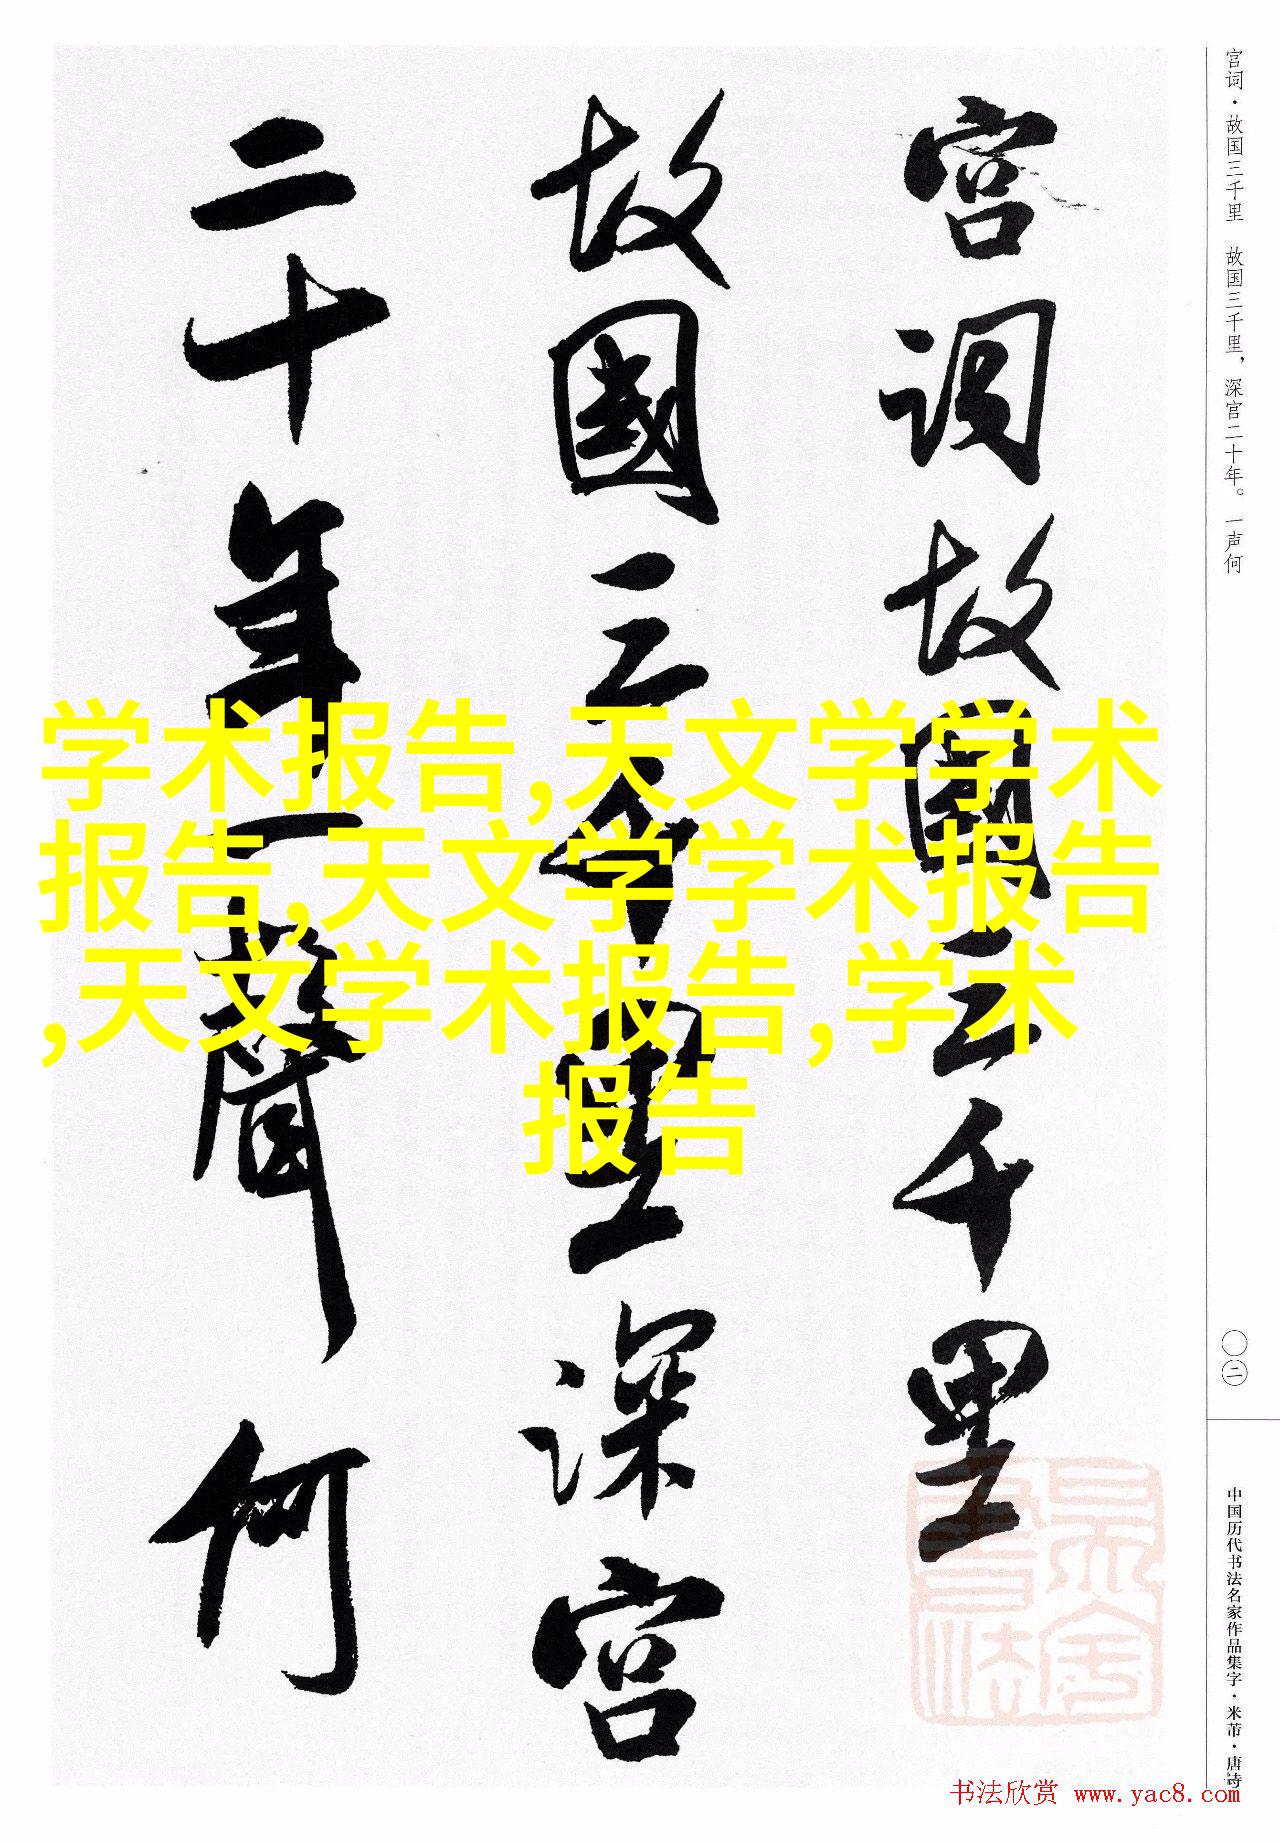 宫词·故国三千里 故国三千里，深宫二十年。一声何
宫词故國三千里
故國三千里深宫
二十年一聲何
学术报告,天文学学术
报告,天文学学术报告
,天文学术报告,学术
报告
〇二
中国历代书法名家作品集字·米芾·唐诗
书法欣赏 www.yac8.com